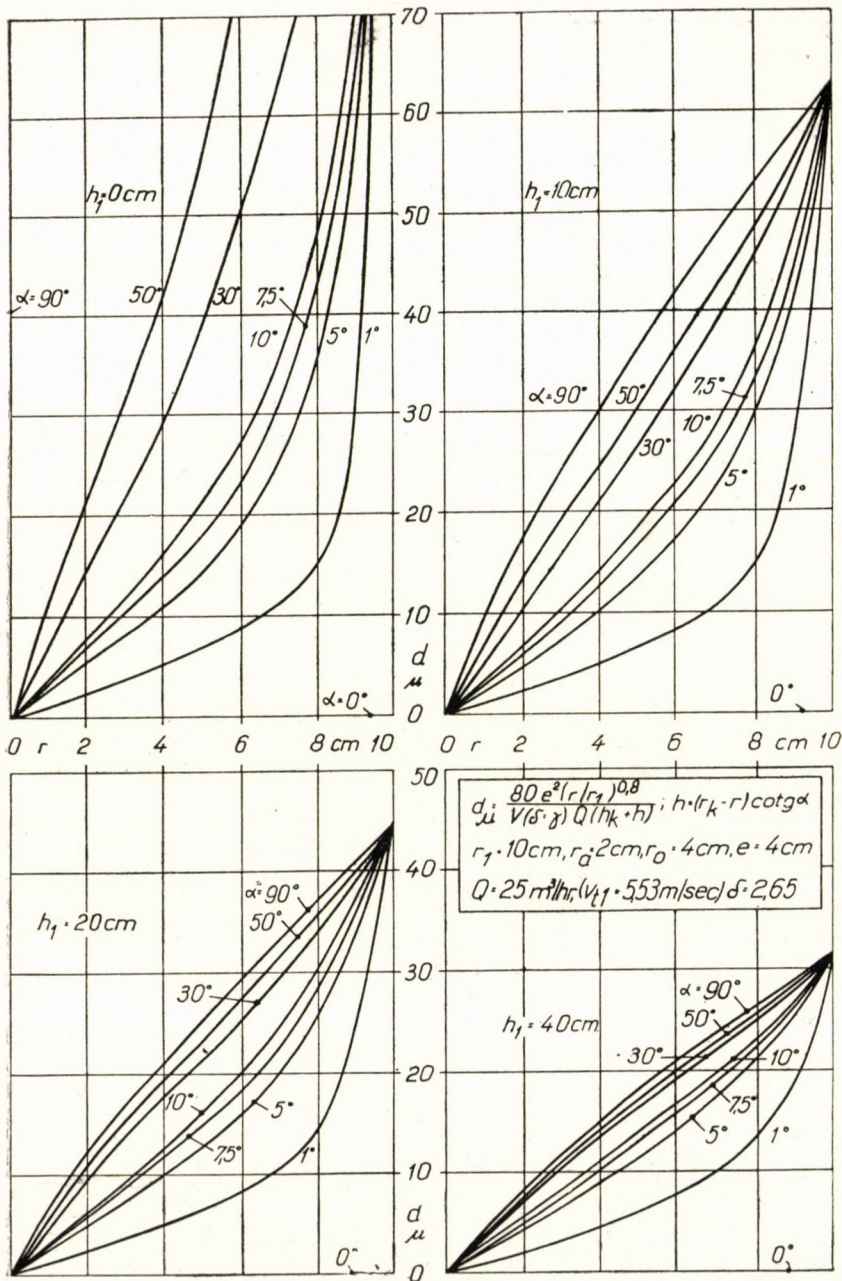 70
60
50
40
30
20
10
0
d
μ
h₁=0cm
α=90°
50°
30°
7,5°
10°
5°
1°
α=0°
0 r 2 4 6 8 cm 10
h₁=10cm
α=90°
50°
30°
7,5°
10°
5°
1°
0°
0 r 2 4 6 8 cm 10
50
40
30
20
10
0
d
μ
h₁=20cm
α=90°
50°
30°
10°
7,5°
5°
1°
0°
d_μ = 80 e² (r/r₁)^0,8 / √(δ-γ) Q (h_k+h) ; h=(r_k-r) cotg α
r₁=10cm, r_a=2cm, r_o=4cm, e=4cm
Q=25 m³/hr, (v_t1=5,53m/sec) δ=2,65
h₁=40cm
α=90°
50°
30°
10°
7,5°
5°
1°
0°